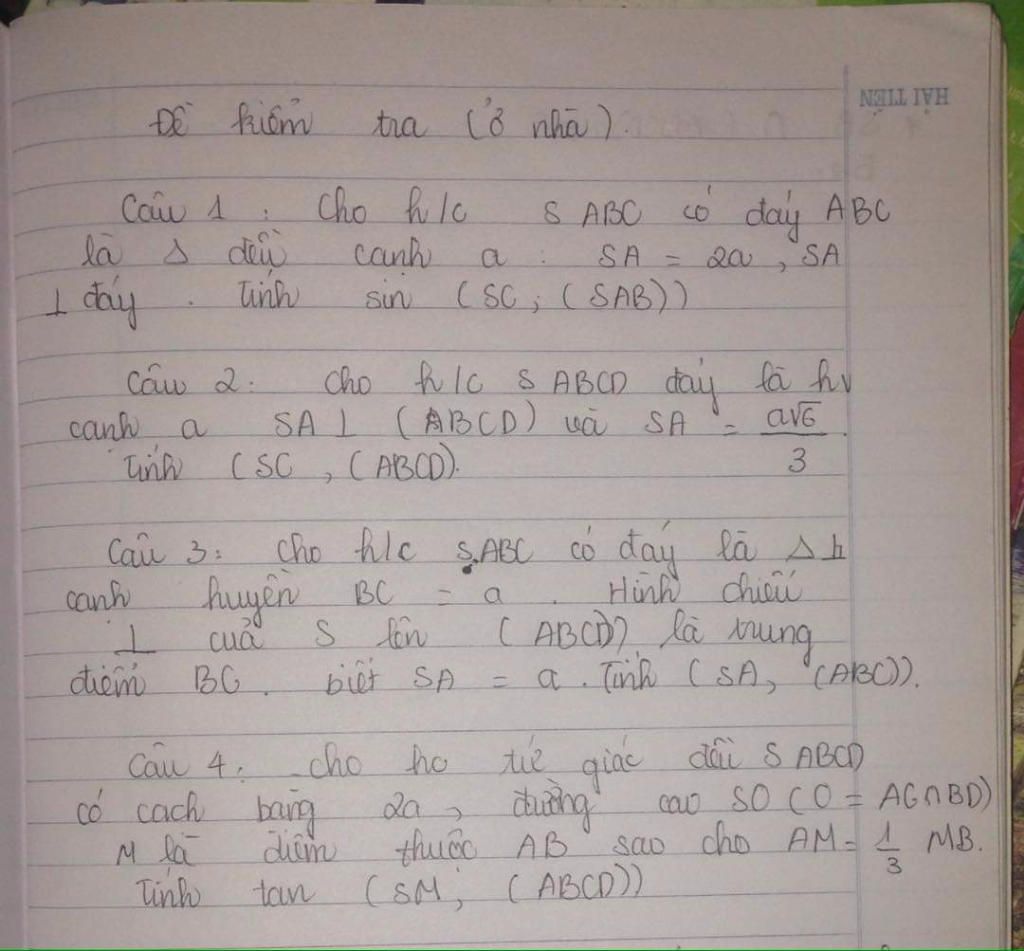 HẢI TIẾN
Đề kiểm tra (ở nhà).
Câu 1 : Cho h/c S ABC có đáy ABC
là Δ đều cạnh a : SA = 2a , SA
⊥ đáy . Tính sin (SC ; (SAB))
Câu 2 : Cho h/c S ABCD đáy là hv
cạnh a SA ⊥ (ABCD) và SA = a√6/3 .
Tính (SC , (ABCD).
Câu 3 : Cho h/c S.ABC có đáy là Δ ⊥
cạnh huyền BC = a . Hình chiếu
⊥ của S lên (ABCD) là trung
điểm BC . biết SA = a . Tính (SA, (ABC)).
Câu 4 : Cho hc tứ giác đều S ABCD
có cach bằng 2a , đường cao SO (O = AC∩BD)
M là điểm thuộc AB sao cho AM = 1/3 MB.
Tính tan (SM ; (ABCD))